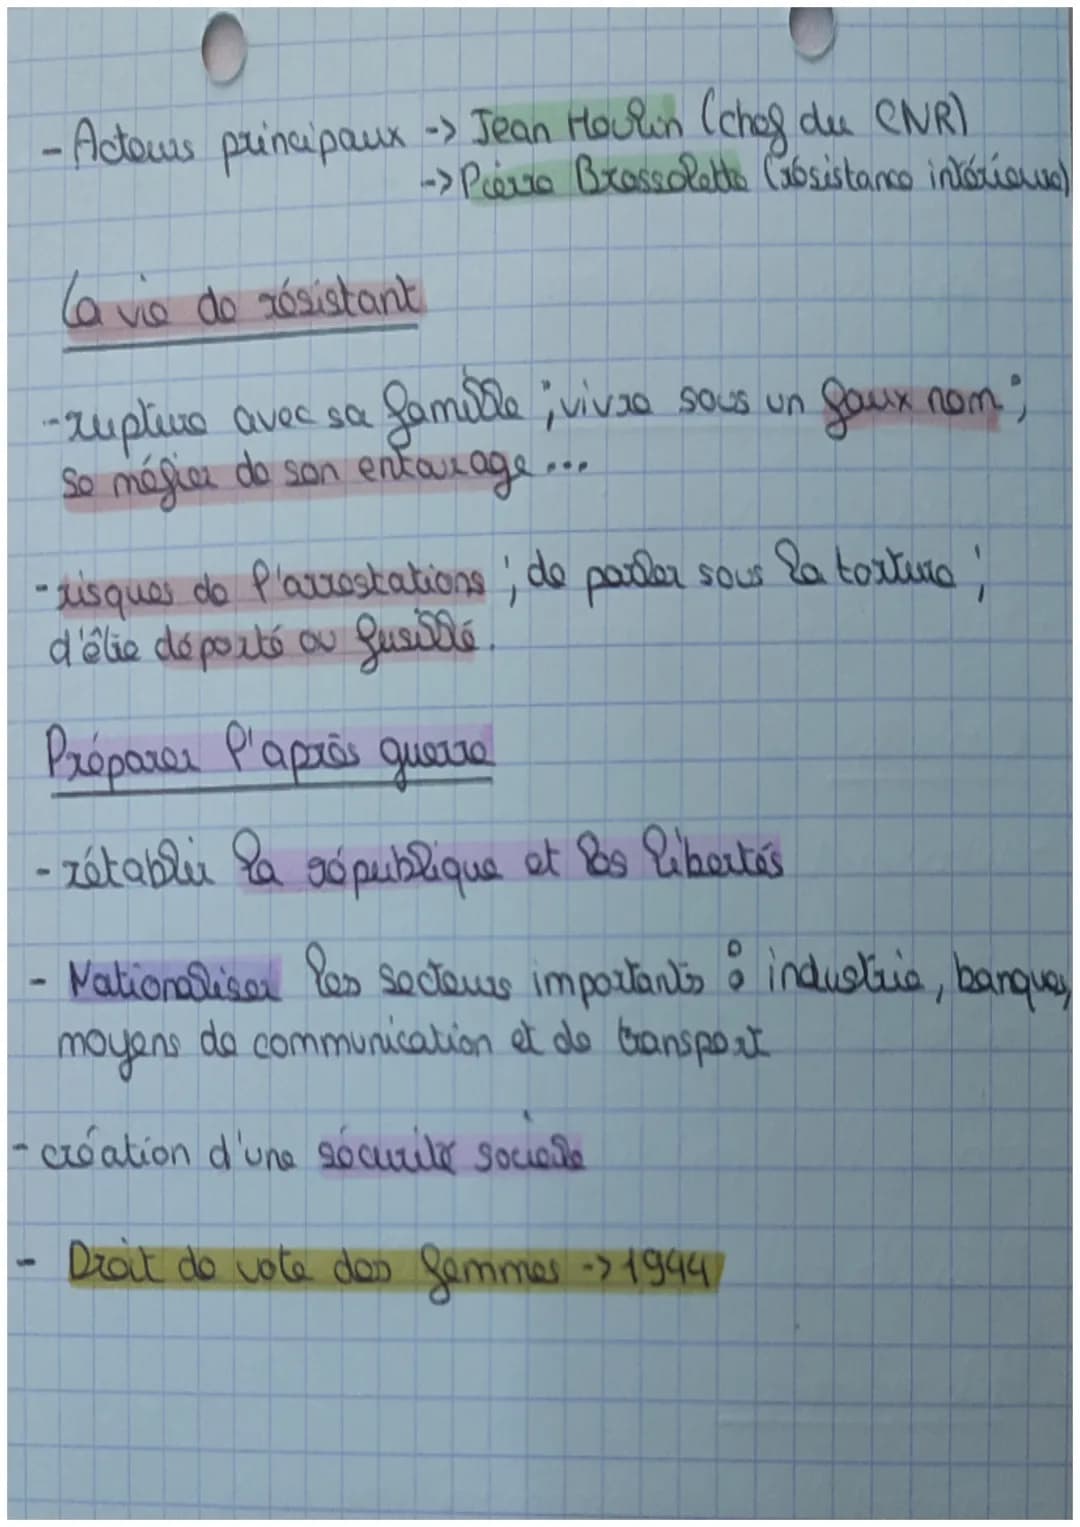 - Acteurs principaux -> Jean Moulin (chef du CNR)
-> Pierre Brossolette (résistance intérieure)
La vie de résistant
- rupture avec sa famille ; vivre sous un faux nom ;
se méfier de son entourage ...
- risques de l'arrestations ; de parler sous la torture ;
d'être déporté ou fusillé.
Préparer l'après guerre
- rétablir la république et les libertés
- Nationaliser les secteurs importants : industrie, banques,
moyens de communication et de transport
- création d'une sécurité sociale
- Droit de vote des femmes -> 1944